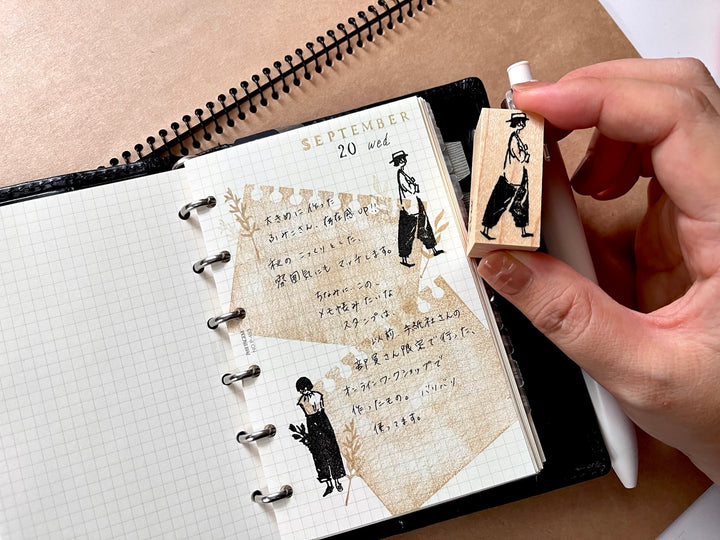 SEPTEMBER
20 wed
大きめに作った
ふみこさん、存在感UP!!
秋のこっくりとした、
雰囲気にもマッチします。
ちなみに、この、
メモ帳みたいな
スタンプは、
以前、手紙社さんの
部員さん限定で行った、
オンラインワークショップで
作ったもの。バリバリ
使ってます。